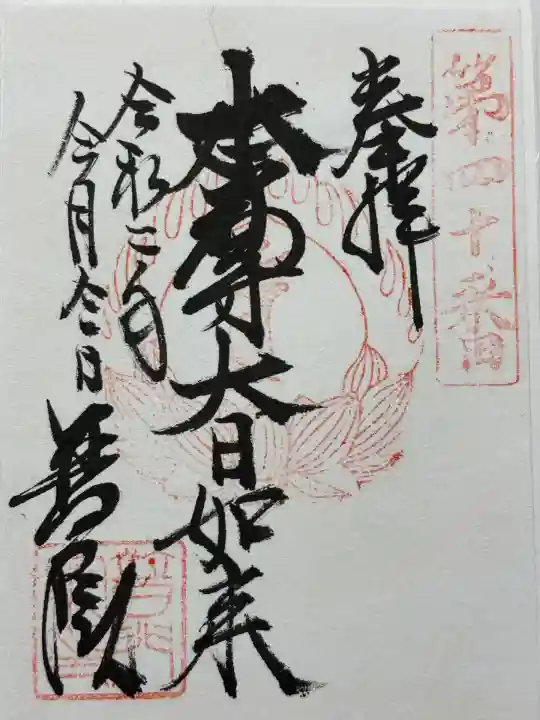 第四十番
奉拝
本尊大日如来
令和二年
今月今日